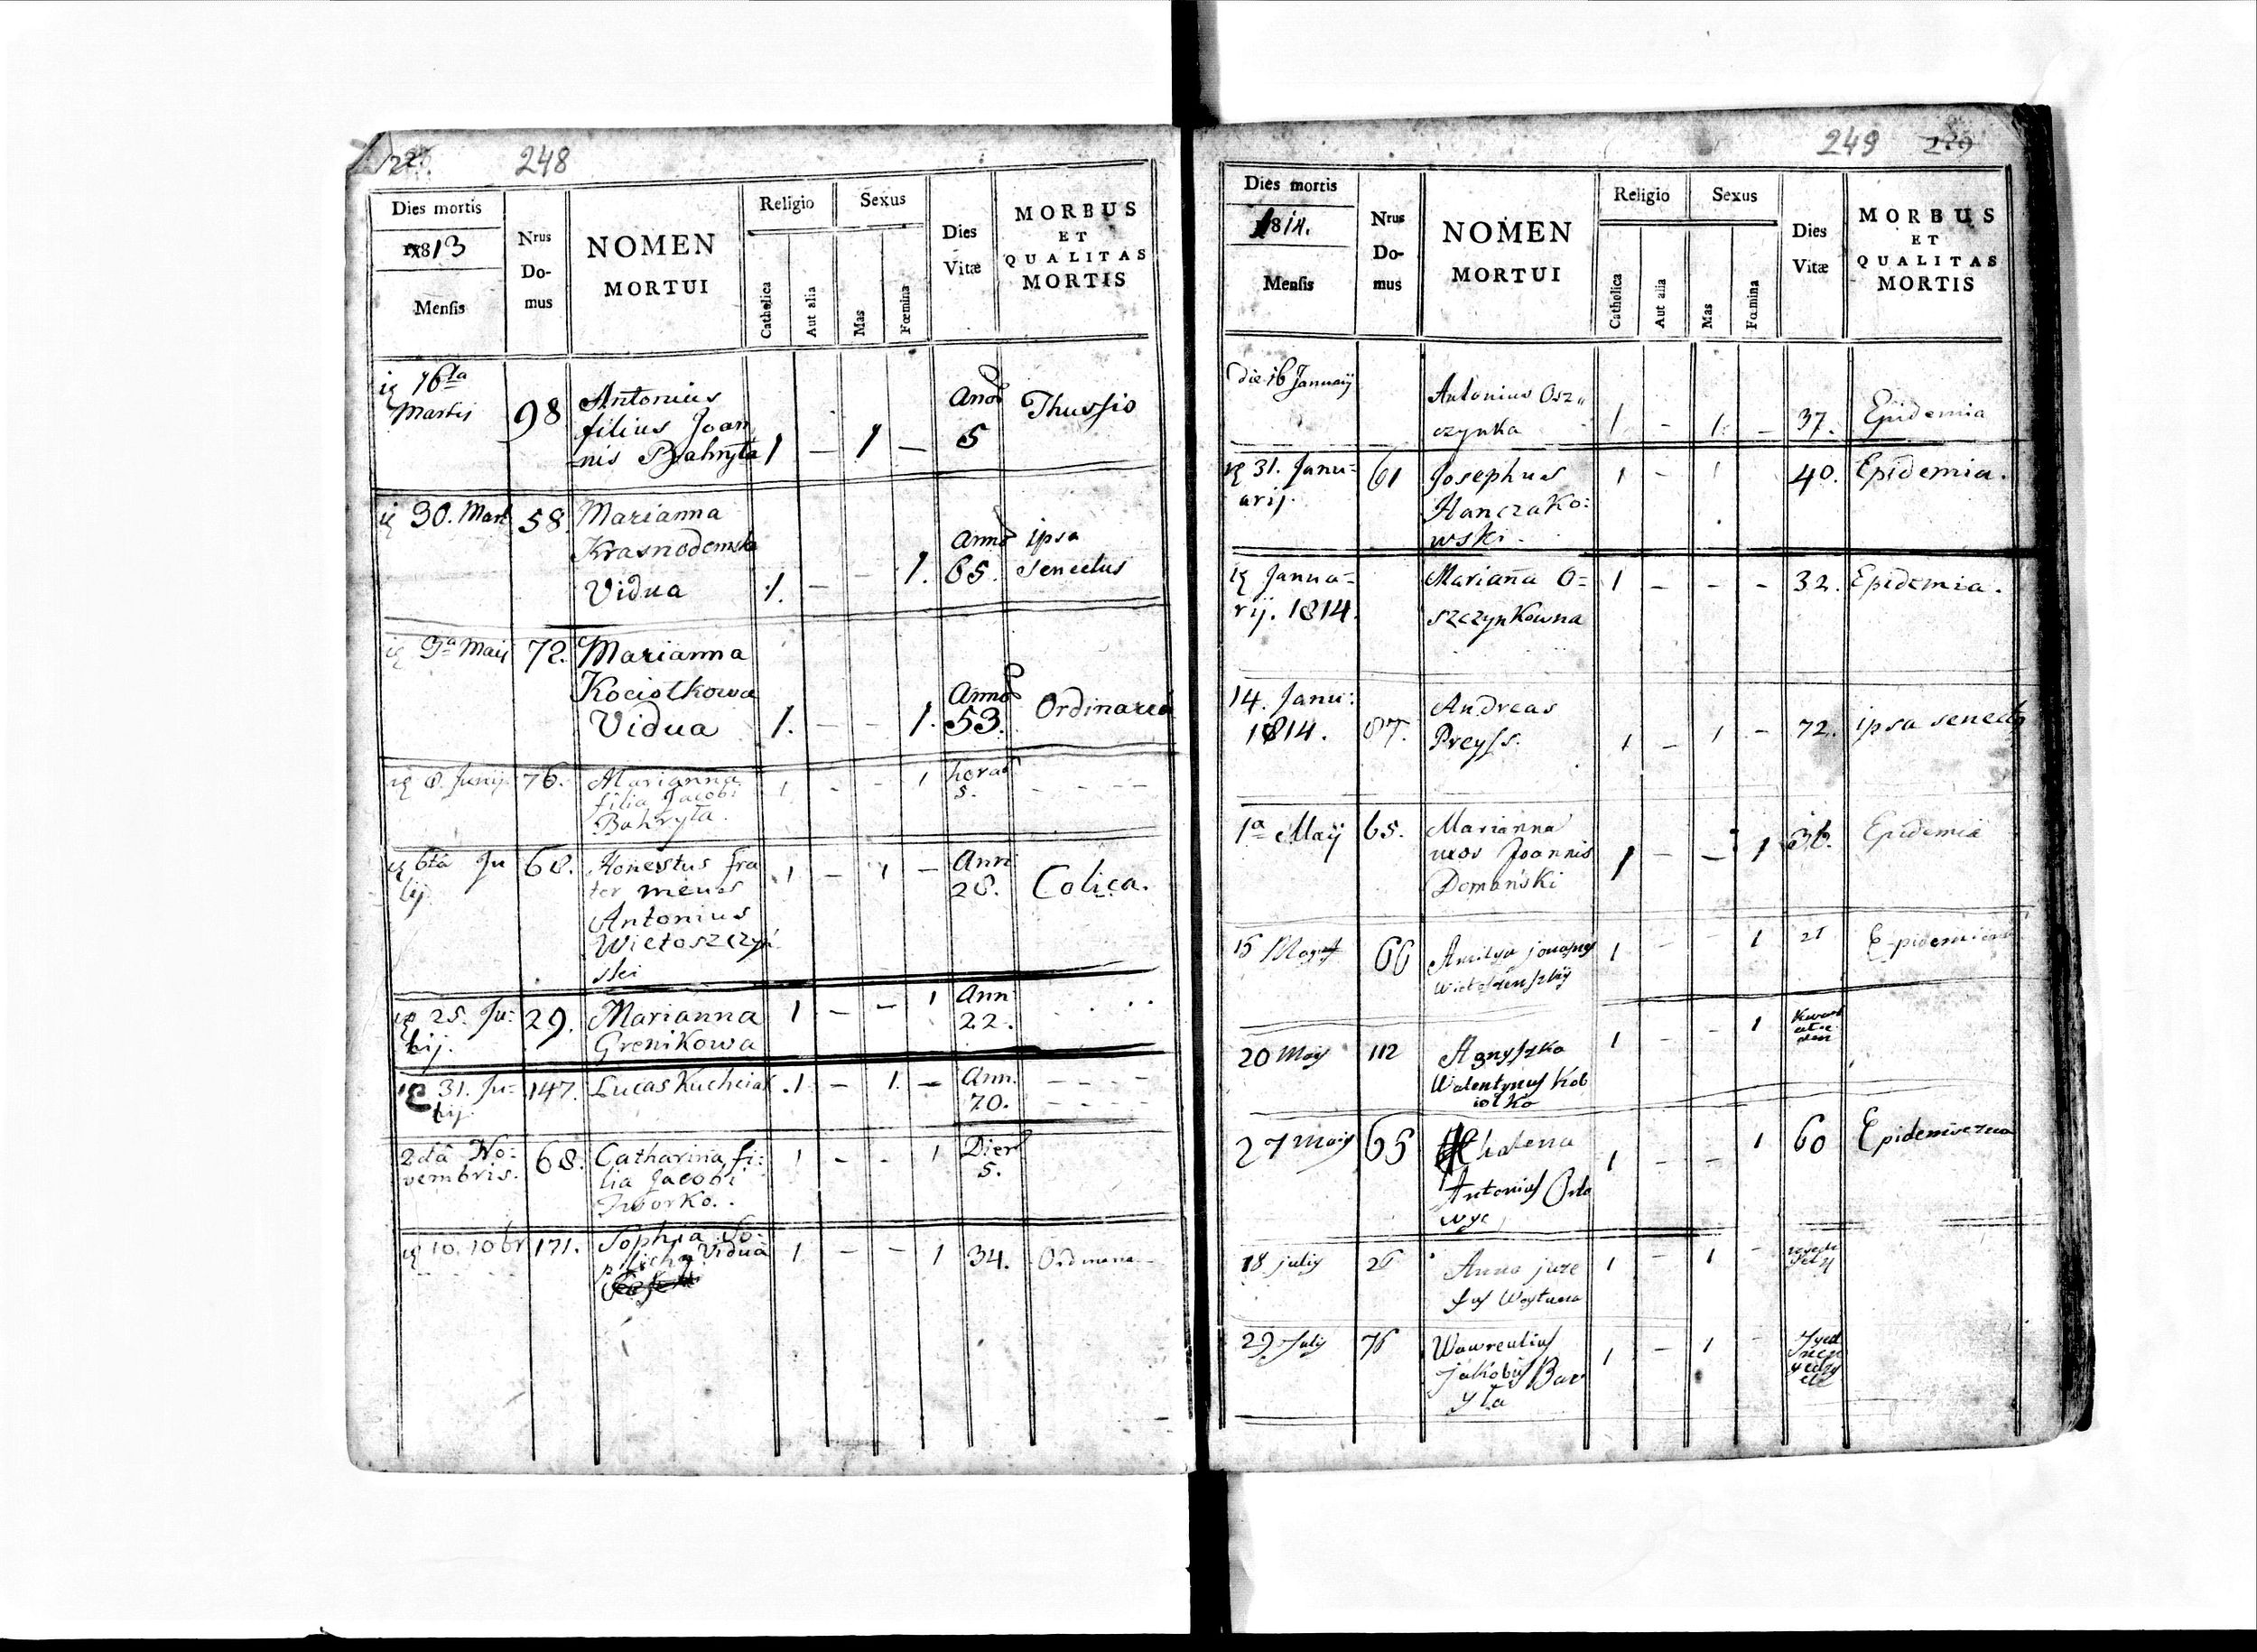 248
Dies mortis
1813
Mensis
Nrus
Do-
mus
NOMEN
MORTUI
Religio
Catholica
Aut alia
Sexus
Mas
Fœmina
Dies
Vitæ
MORBUS
ET
QUALITAS
MORTIS
16ta
Martij
98
Antonius
filius Joan
nis Bahryła
1 — 1 —
5
Thussio
30. Mart
58.
Marianna
Krasnodemska
Vidua
1. — — 1.
65.
ipsa
Senectus
3a Maij
72.
Marianna
Kociołkowa
Vidua
1. — — 1.
53.
Ordinaria
8. Junij.
76.
Marianna
filia Jacobi
Bahryła.
1 - - 1
horas
5.
- - - -
6ta Ju
lij
68.
Honestus fra
ter meus
Antonius
Wietoszczyń
ski
1 — 1 —
Ann
28.
Colica.
25. Ju:
lij.
29.
Marianna
Grenikowa
1 — — 1
Ann
22.
31. Ju=
lij.
147.
Lucas Kuchciak
1 — 1. —
Ann.
70.
- - - -
- - - -
2da No:
vembris.
68.
Catharina fi:
lia Jacobi
Dworko.
1 - - 1
Dier
5.
10. 10br
171.
Sophia So:
Vidua
1 — — 1
34.
249
229
Dies mortis
1814.
Mensis
Nrus
Do-
mus
NOMEN
MORTUI
Religio
Catholica
Aut alia
Sexus
Mas
Fœmina
Dies
Vitæ
MORBUS
ET
QUALITAS
MORTIS
die 16 Januarij
Antonius Osz„
czynka
1 - 1. -
37.
Epidemia
31. Janu=
arij.
61
Josephus
Hanczako:
wski.
1 - 1
40.
Epidemia.
Janua=
rij. 1814.
Marianna O=
szczynkowna
1 — - -
32.
Epidemia.
14. Janu:
1814.
87.
Andreas
Preyss.
1 — 1 -
72.
ipsa senectus
1a Maij
65.
Marianna
uxor Joannis
Domański
1 — — 1
36.
Epidemia
15
66
1 - - 1
21
20 Maij
112
Agnyszka
Walentynus Kob
iołka
1 - - 1
27 Maij
65
Antonius
1 - - 1
60
18 julij
26
Anna juze
fus
1 - 1 -
29 Julij
76
Jakobus Bar
yła
1 - 1 -